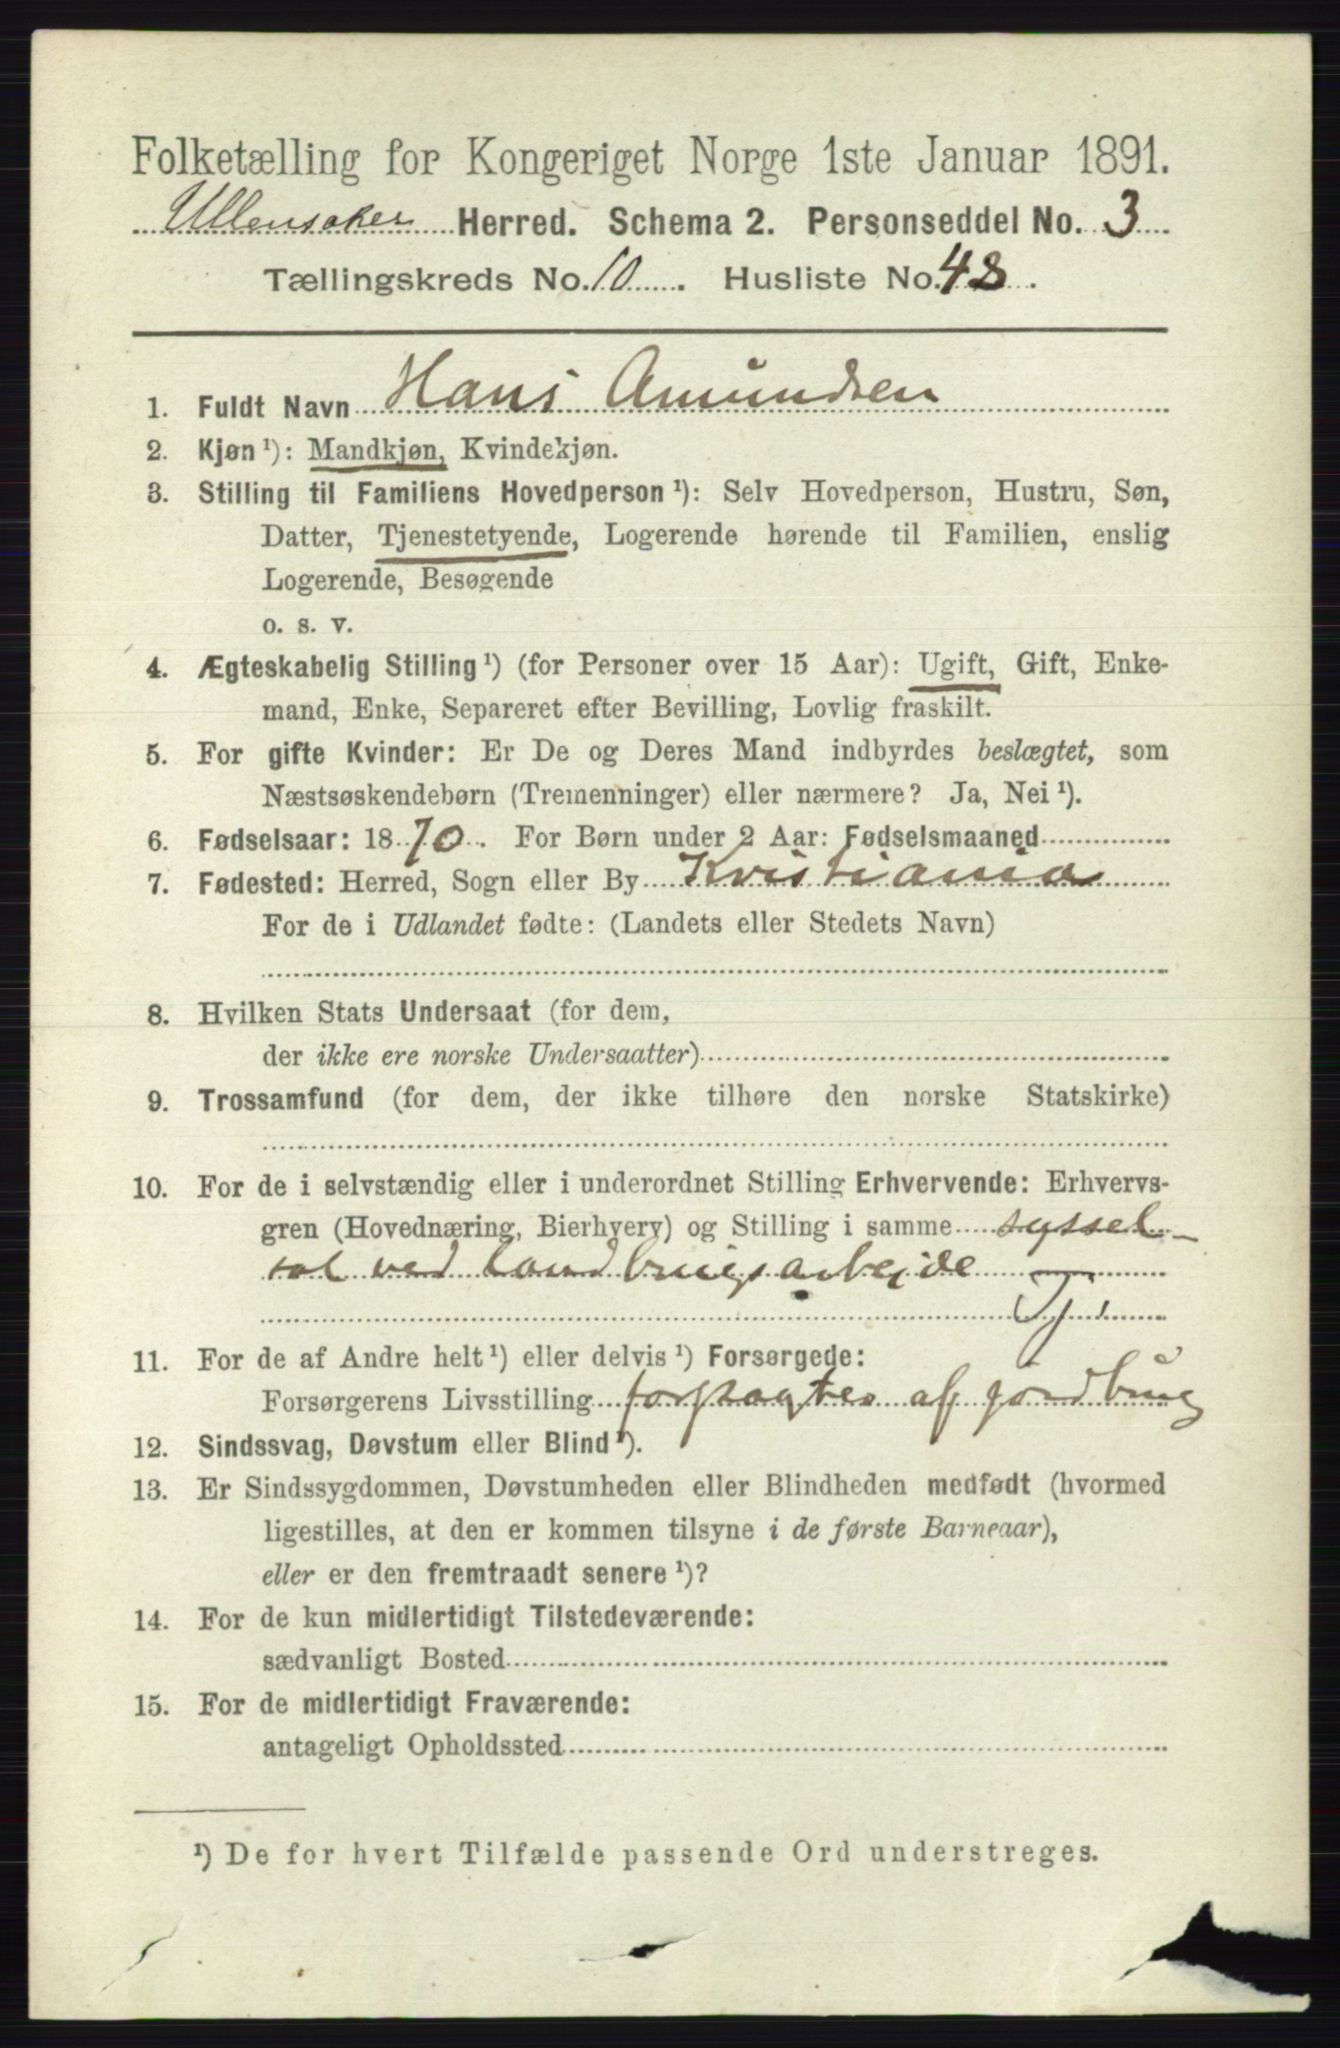 Folketælling for Kongeriget Norge 1ste Januar 1891.
Ullensaker Herred. Schema 2. Personseddel No. 3
Tællingskreds No. 10. Husliste No. 48.
1. Fuldt Navn Hans Amundsen
2. Kjøn ¹): Mandkjøn, Kvindekjøn.
3. Stilling til Familiens Hovedperson ¹): Selv Hovedperson, Hustru, Søn,
Datter, Tjenestetyende, Logerende hørende til Familien, enslig
Logerende, Besøgende
o. s. v.
4. Ægteskabelig Stilling ¹) (for Personer over 15 Aar): Ugift, Gift, Enke-
mand, Enke, Separeret efter Bevilling, Lovlig fraskilt.
5. For gifte Kvinder: Er De og Deres Mand indbyrdes beslægtet, som
Næstsøskendebørn (Tremenninger) eller nærmere? Ja, Nei ¹).
6. Fødselsaar: 1870. For Børn under 2 Aar: Fødselsmaaned
7. Fødested: Herred, Sogn eller By Kristiania
For de i Udlandet fødte: (Landets eller Stedets Navn)
8. Hvilken Stats Undersaat (for dem,
der ikke ere norske Undersaatter)
9. Trossamfund (for dem, der ikke tilhøre den norske Statskirke)
10. For de i selvstændig eller i underordnet Stilling Erhvervende: Erhvervs-
gren (Hovednæring, Bierhverv) og Stilling i samme syssel-
sat ved landbrugsarbejde
Tj.
11. For de af Andre helt ¹) eller delvis ¹) Forsørgede:
Forsørgerens Livsstilling forpagter af jordbrug
12. Sindssvag, Døvstum eller Blind ¹).
13. Er Sindssygdommen, Døvstumheden eller Blindheden medfødt (hvormed
ligestilles, at den er kommen tilsyne i de første Barneaar),
eller er den fremtraadt senere ¹)?
14. For de kun midlertidigt Tilstedeværende:
sædvanligt Bosted
15. For de midlertidigt Fraværende:
antageligt Opholdssted
¹) De for hvert Tilfælde passende Ord understreges.